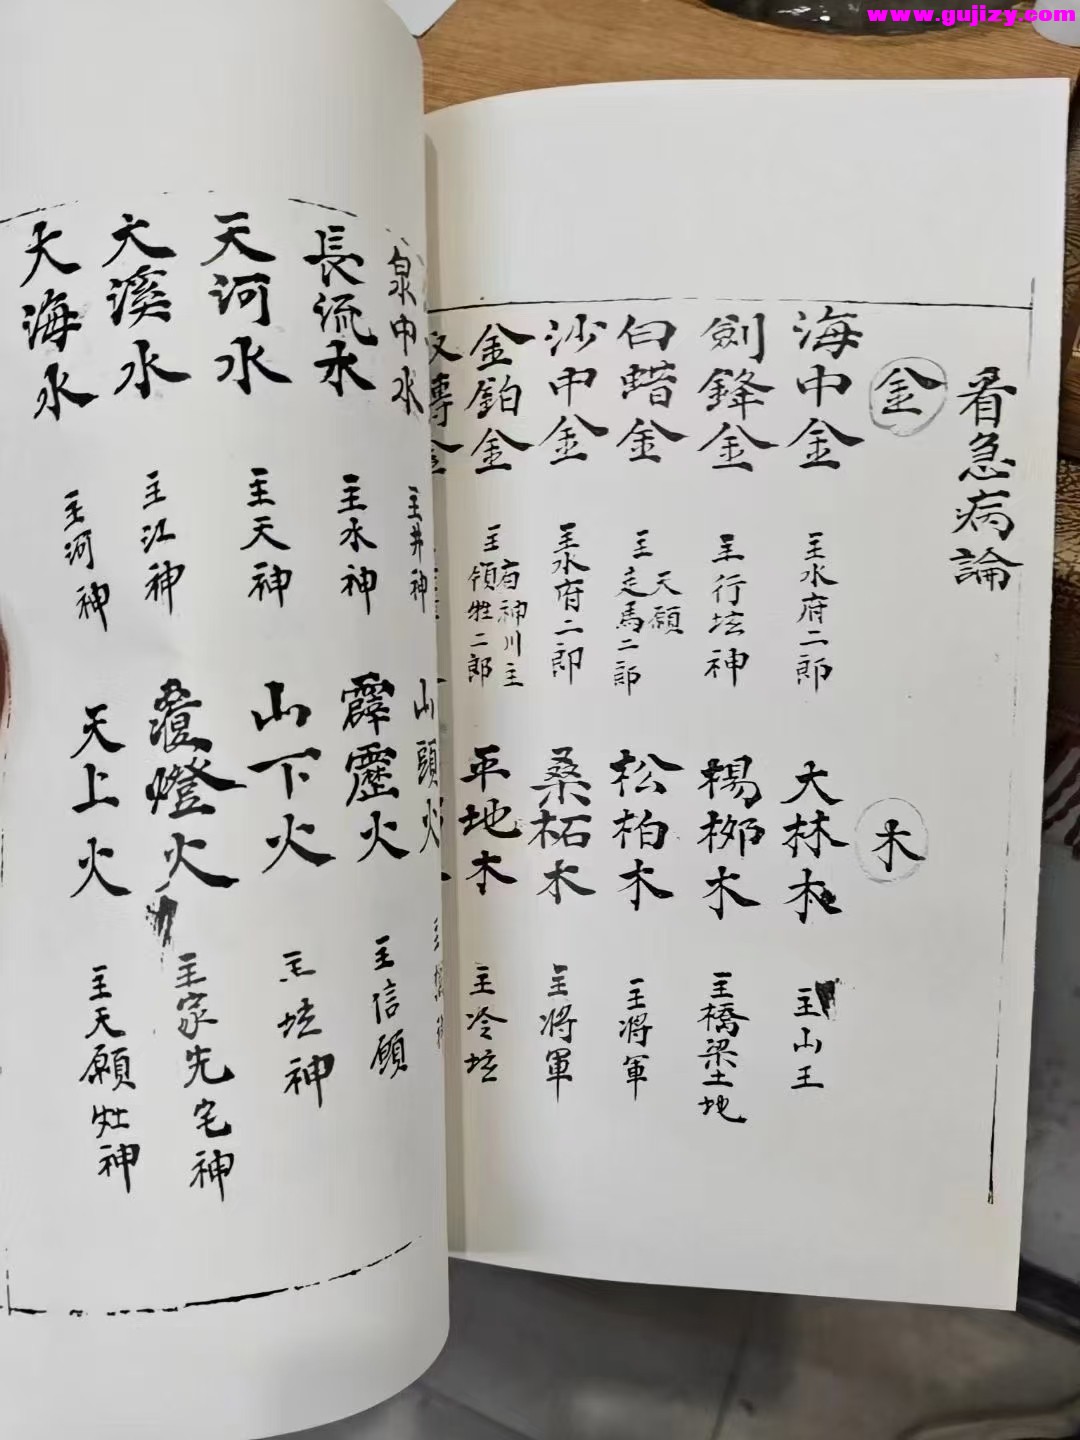 www.gujizy.com
看急病論
金
海中金
主水府二郎
劍鋒金
主行坛神
白蜡金
主走馬二郎
天願
沙中金
主水府二郎
金鉑金
主領牲二郎
有神川主
木
大林木
主山王
楊柳木
主橋梁土地
松柏木
主將軍
桑柘木
主將軍
平地木
主冷坛
泉中水
主井神
長流水
主水神
天河水
主天神
大溪水
主江神
大海水
主河神
山頭火
霹靂火
主信願
山下火
主坛神
燈火
主家先宅神
天上火
主天願灶神